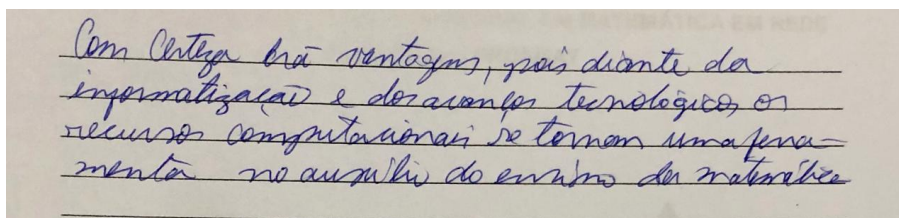 Com certeza há vantagens, pois diante da
informatização e dos avanços tecnológicos os
recursos computacionais se tornam uma ferra-
menta no auxílio do ensino da matemática